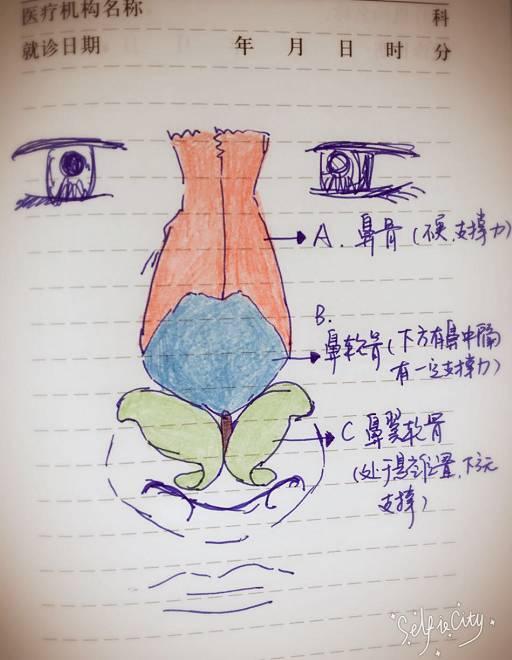 医疗机构名称 科
就诊日期 年 月 日 时 分
A. 鼻骨（硬.支撑力）
B.
鼻软骨（下方有鼻中隔
有一定支撑力）
C 鼻翼软骨
（处于悬空位置,下无
支撑）
SelfieCity